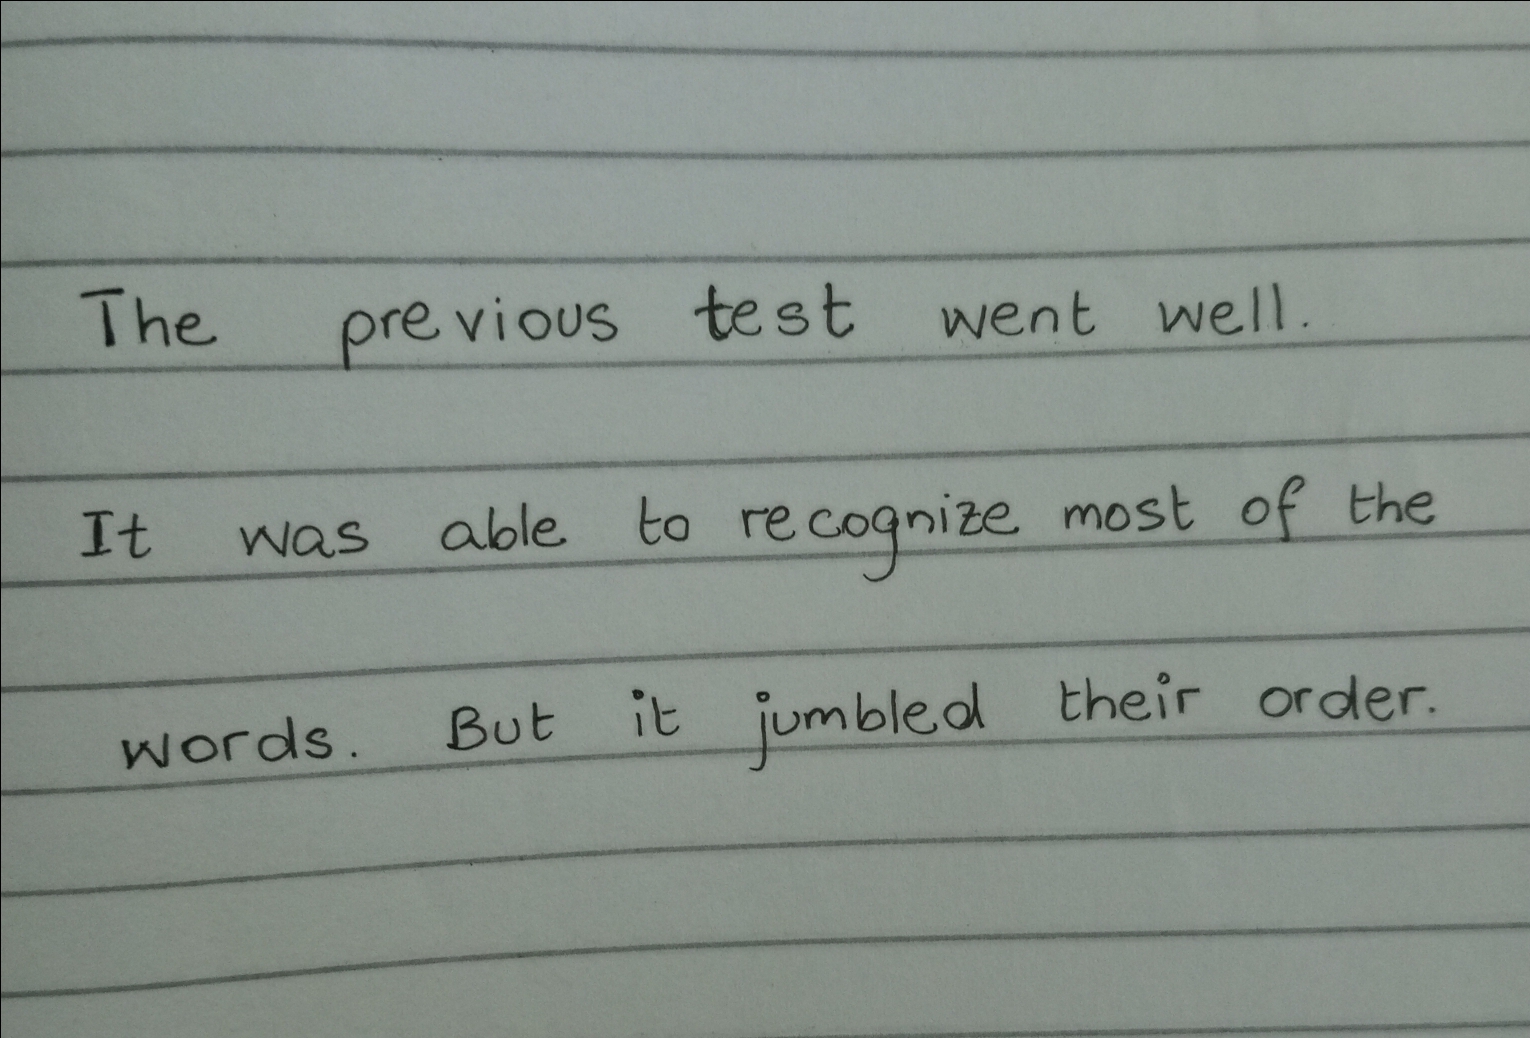 The previous test went well.
It was able to recognize most of the
words. But it jumbled their order.